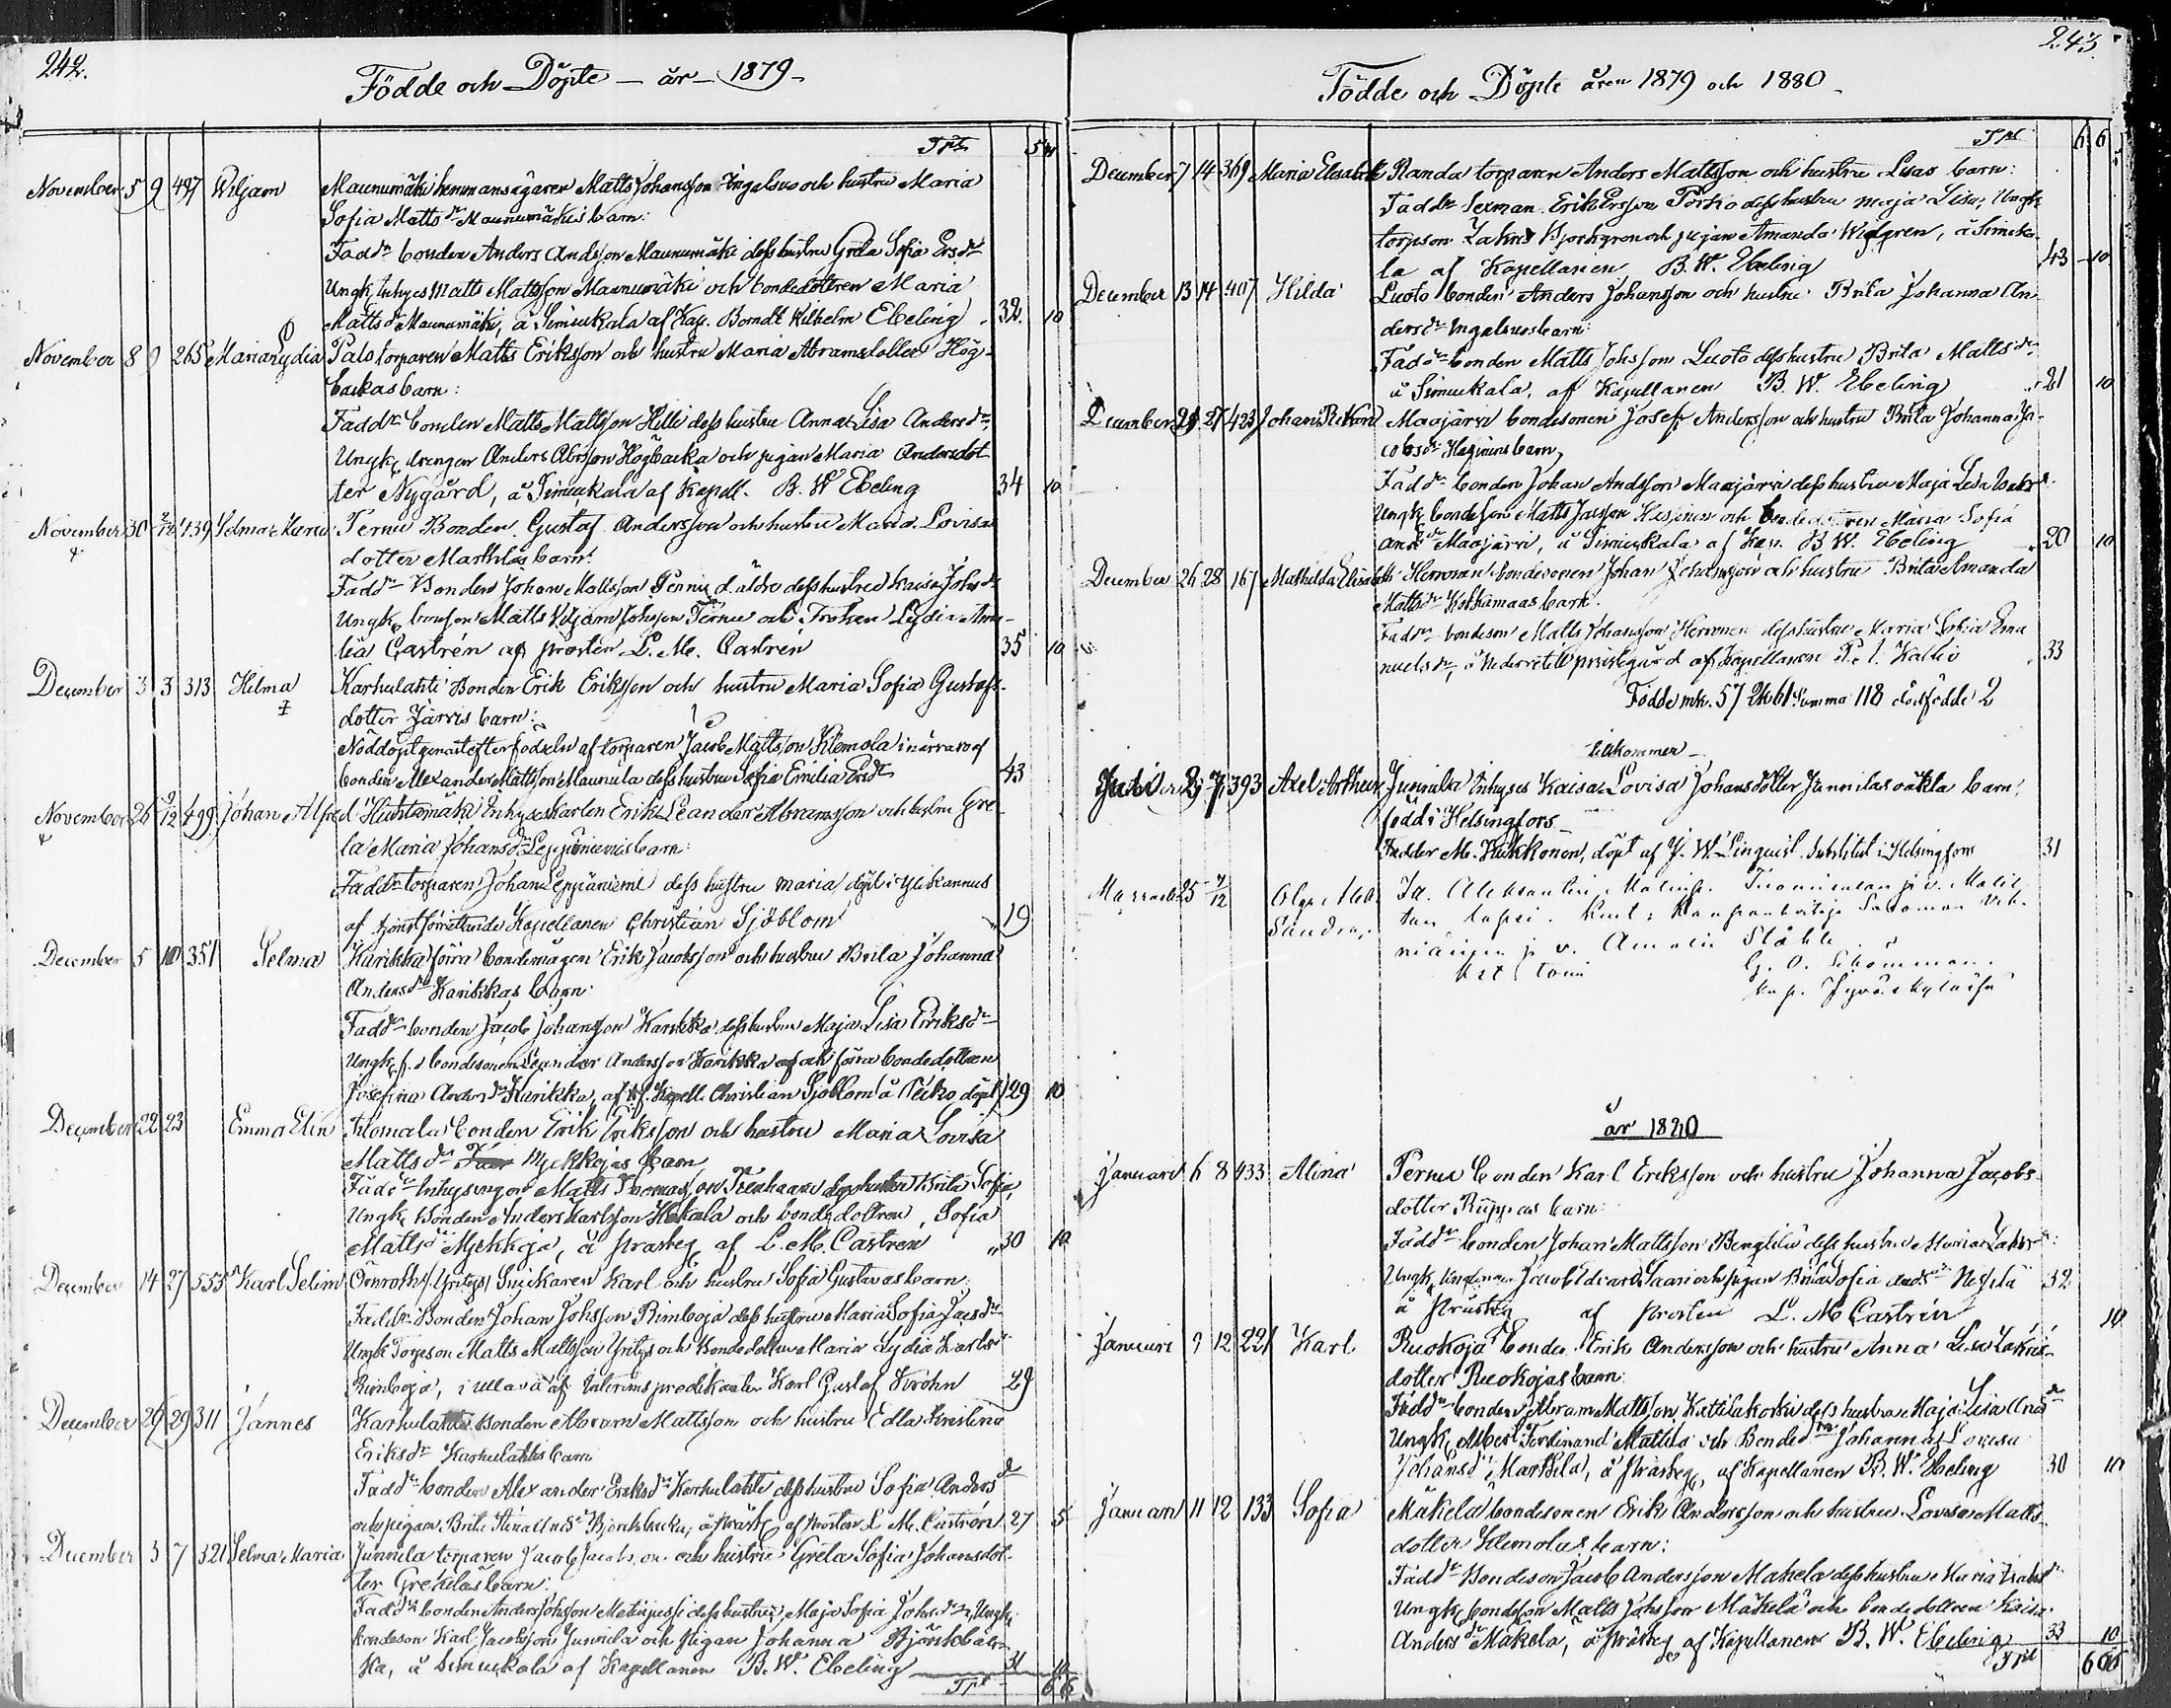 242.
Födde och Döpte – år – 1879 –
Trpt 5
November 5 9 497 Viljam Maunumäki hemmansägaren Matts Johansson Ingalsuo och hustru Maria
Sofia Mattsdr Maunumäkis barn:
Faddr bonden Anders Andsson Maunumäki dess hustru Greta Sofia Ersdr
Ungk. Inhyses Matts Mattsson Maunumäki och bondedottren Maria
Mattsdr Maunumäki, å Simukala af Kap. Berndt Vilhelm Ebeling 32. 10
November 8 9 265 Maria Lydia Palo torparen Matts Eriksson och hustru Maria Abramsdotter Hög-
backas barn:
Faddr bonden Matts Mattsson Hilli dess hustru Anna Lisa Andersdr,
Ungk. drengen Anders Abrsson Högbacka och pigan Maria Andersdot-
ter Nygård, å Simukala af Kapell. B. W. Ebeling 34 10
November 30 2/12 439 Selma Maria Pernu Bonden Gustaf Andersson och hustru Maria Lovisa
dotter Marthilas barn:
Faddr Bonden Johan Mattsson Pernu d. äldre dess hustru Kaisa Johsdr
Ungk. bonson Matts Viljam Johsson Pernu och Fröken Lydia Ama-
lia Castrén af prosten L. M. Castrén 35 10
December 3 3 313 Hilma Karhulahti Bonden Erik Eriksson och hustru Maria Sofia Gustafs-
dotter Järvis barn:
Nöddöpt genast efter födseln af torparen Jacob Mattsson Klemola i närvaro af
bonden Alexander Mattsson Maunula dess hustru Sofia Emilia Ersdr 43
November 26 9/12 499 Johan Alfred Huhtamäki Inhyseskarlen Erik Leander Abramsson och hustru Gre-
ta Maria Johansdr Leppäniemis barn:
Faddr torparen Johan Leppäniemi dess hustru Maria, döpt i Ylikannus
af tjenstförrättande Kapellanen Christian Sjöblom 19
December 5 10 351 Selma Karikka förra bondemågen Erik Jacobsson och hustru Brita Johanna
Andersdr Karikkas barn:
Faddr bonden Jacob Johansson Karikka dess hustru Maja Lisa Eriksdr
Ungk. f.d bondesonen Leander Andersson Karikka och förra bondedottren
Josefina Andersdr Karikka, af tf. Kapell. Christian Sjöblom å Peiko döpt 29 10
December 22 23 Emma Elin Klomala bonden Erik Eriksson och hustru Maria Lovisa
Mattsdr Myekkojas barn
Faddr Inhysingen Matts Thomasson Tienhaara dess hustru Brita Sofia,
Ungk. bonden Anders Karlsson Hakala och bondedottren Sofia
Mattsdr Myekkoja, å prästeg. af L. M. Castren 30 10
December 14 27 555 Karl Selim Örnroths, Yritys, Snickaren Karl och hustru Sofia Gustavas barn:
Faddr Bonden Johan Johsson Rimboja dess hustru Maria Sofia Jacsdr
Ungk Torpson Matts Mattsson Yritys och Bondedottren Maria Lydia Karlsdr
Rimboja, i Ullava af Interims predikanten Karl Gustaf Krohn 29
December 26 29 311 Jannes Karhulahti bonden Abram Mattsson och hustru Edla Kristina
Eriksdr Karhulahtis barn
Faddr bonden Alexander Eriksdr Karhulahti dess hustru Sofia Andersdr
och pigan Brita Stina Andsdr Björkbacka, å prästg. af Prosten L. M. Castrén 27 5
December 3 7 321 Selma Maria Junnila torparen Jacob Jacobsson och hustru Greta Sofia Johansdot-
ter Grekiläs barn:
Faddr bonden Anders Johsson Metinjussi dess hustru Maja Sofia Johsdr, Ungk.
bondeson Karl Jacobsson Junnila och Pigan Johanna Björkbac-
ka, å Simukala af Kapellanen B. W. Ebeling 31 10
Trpt 6 6
243.
Födde och Döpte åren 1879 och 1880
Trpt 6 6
December 7 14 369 Maria Elisabeth Randa torparen Anders Mattsson och hustru Lisas barn:
Faddr Sexman Erik Ersson Torkko dess hustru Maja Lisa, Ungk.
torpson Zakris Bjorkgren och pigan Amanda Widgren, å Simuka-
la af Kapellanen B. W. Ebeling 43 10
December 13 14 407 Hilda Luoto bonden Anders Johansson och hustru Brita Johanna An-
dersdr Ingalsuos barn:
Faddr bonden Matts Johsson Luoto dess hustru Brita Mattsdr
å Simukala, af Kapellanen B. W. Ebeling 21 10
December 21 27 423 Johan Rikhard Maajärvi bondesonen Josef Andersson och hustru Brita Johanna Ja-
cobsdr Haginens barn,
Faddr bonden Johan Andsson Maajärvi dess hustru Maja Lisa
Ungk. bondeson Matts Jacsson och bondedottren Maria Sofia
Andsdr Maajärvi, å Simukala af Kap. B. W. Ebeling 20 10
December 26 28 167 Mathilda Elisabeth Herronen bondesonen Johan Johansson och hustru Brita Amanda
Mattsdr Kotkamaas barn.
Faddr bondeson Matts Johansson Herronen dess hustru Maria Sofia Ema
nuelsdr, å Nedervetil prästgård af Kapellanen P. I. Kallio 33
Födde mk. 57 qk 61 Summa 118 dödfödde 2
tillkommer
Juli 2 7 393 Axel Arthur Junnila Inhyses Kaisa Lovisa Johansdotter Junnilas oäkta barn,
född i Helsingfors
Fadder M. Hukkonen, döpt af J. W. Linquist. Substitut i Helsingfors 31
Marrask. 25 7/12 Olga Alek- It. Aleksanteri Matinp. Tuomimaan ja v. Matil-
Sandra, tan lapsi. Kast: Kaupanhoitaja Salomon
niäinen ja v. Amalia Ståhle
Kst toim G. O. Schoumman.
Kap. Jyväskylässä
år 1880
Januari 6 8 433 Alina Pernu bonden Karl Eriksson och hustru Johanna Jacobs-
dotter Riippas barn:
Faddr bonden Johan Mattsson Bengtilä dess hustru Maria Zakrisdr:
Ungk. Jacob Edvard Saari och pigan Brita Sofia Andsdr 32
å Prästeg af Prosten L. M. Castrén 10
Januari 9 12 221 Karl Ruokoja bonden Erik Andersson och hustru Anna Lisa Zakris-
dotter Ruokojas barn:
Faddr bonden Abram Mattsson Kattilakoski dess hustru Maja Lisa Andsdr
Ungk. Albert Ferdinand Mattila och Bondedtr Johanna Lovisa
Johansdr Marttila, å prästeg. af Kapellanen B. W. Ebeling 30 10
Januari 11 12 133 Sofia Mäkelä bondesonen Erik Andersson och hustru Lovisa Matts-
dotter Klemolas barn:
Faddr Bondeson Jacob Andersson Mäkelä dess hustru Maria
Ungk. bondeson Matts Johsson Mäkelä och bondedottren Kaisa
Andersdr Mäkelä, å prästeg af Kapellanen B. W. Ebeling 33 10
Trpt 6 6